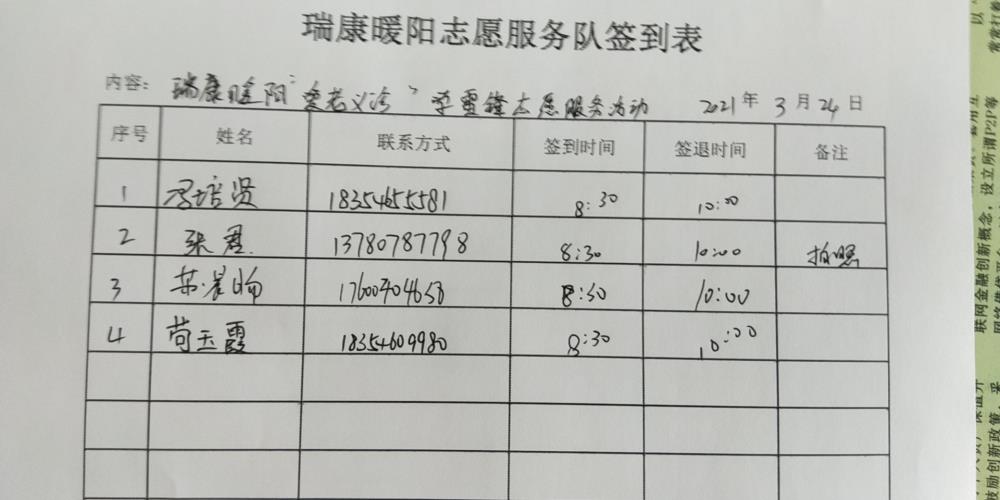 瑞康暖阳志愿服务队签到表
内容: 瑞康暖阳“爱老义诊”学雷锋志愿服务活动 2021年3月24日
序号 姓名 联系方式 签到时间 签退时间 备注
1 冯培贤 18354655581 8:30 10:00
2 张君 13780787798 8:30 10:00 拍照
3 苏晨旸 17600404658 8:30 10:00
4 苟玉霞 18354609980 8:30 10:00
联网金融创新概念,设立所谓P2P等
励创新政策,采